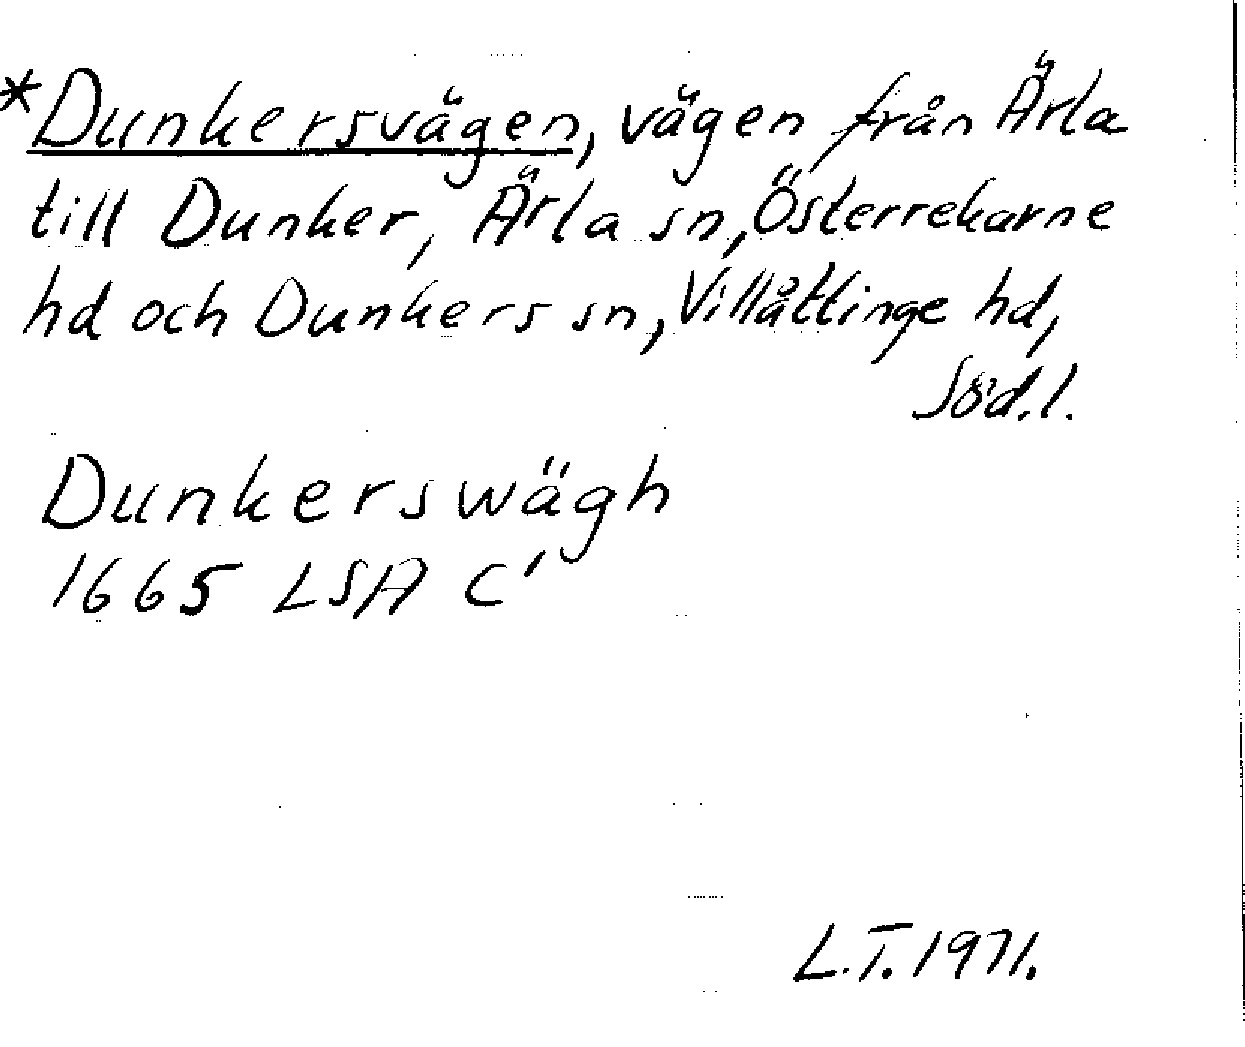 *Dunkersvägen, vägen från Ärla
till Dunker, Ärla sn, Österrekarne
hd och Dunkers sn, Villåttinge hd,
Söd.l.
Dunkerswägh
1665 LSA C'
L.T. 1971.